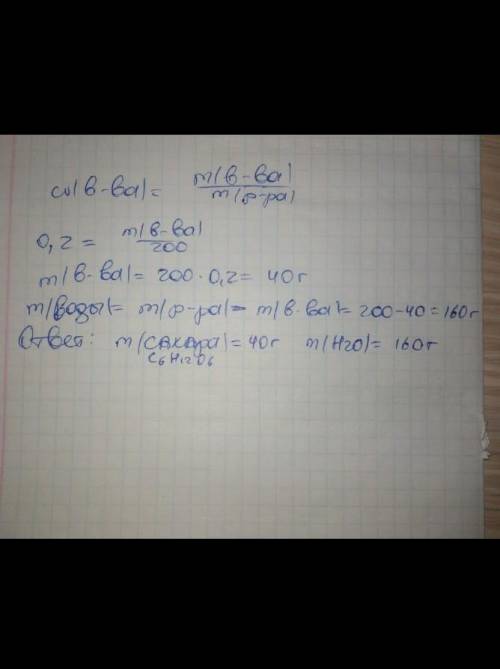 ω(в-ва) = m(в-ва) / m(р-ра)
0,2 = m(в-ва) / 200
m(в-ва) = 200 · 0,2 = 40г
m(воды) = m(р-ра) - m(в-ва) = 200-40 = 160г
Ответ: m(сахара) = 40г m(H2O) = 160г
C6H12O6